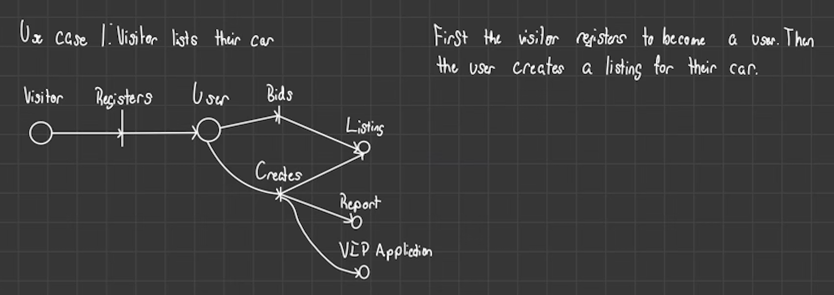 Use case 1: Visitor lists their car
First the visitor registers to become a user. Then
the user creates a listing for their car.
Visitor
Registers
User
Bids
Listing
Creates
Report
VIP Application